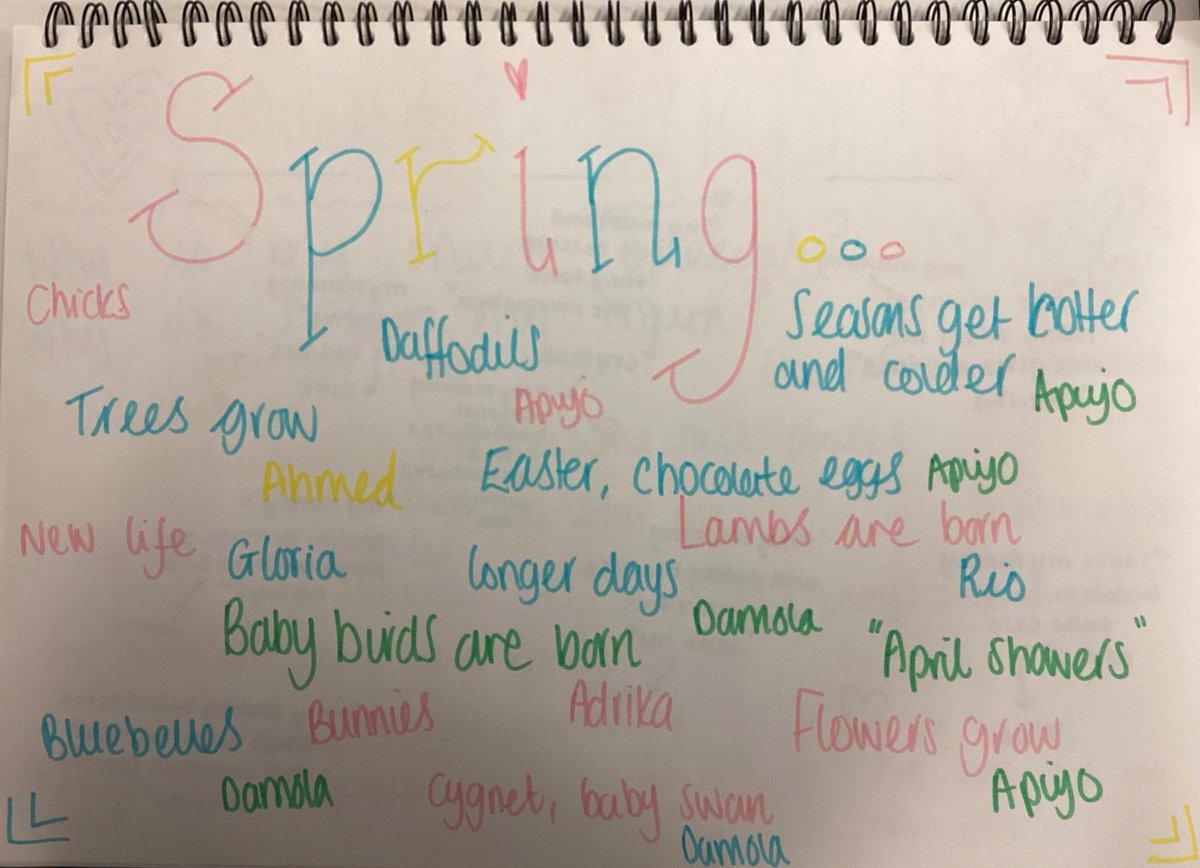 Spring...
Chicks
Daffodils
Seasons get hotter
and colder Apiyo
Apiyo
Trees grow
Ahmed
Easter, chocolate eggs Apiyo
Lambs are born
New life
Gloria
longer days
Rio
Baby birds are born
Damola
"April showers"
Bluebelles
Bunnies
Adrika
Flowers grow
Damola
Cygnet, baby swan
Apiyo
Damola